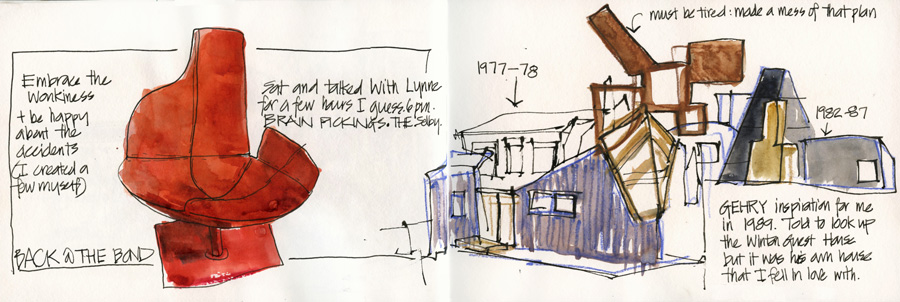 Embrace the
Wonkiness
+ be happy
about the
accidents
(I created a
few myself)
BACK @ THE BOND
Sat and talked with Lynne
for a few hours I guess. 6pm.
BRAIN PICKINGS. THE Selby.
must be tired: made a mess of that plan
1977-78
1982-87
GEHRY inspiration for me
in 1989. Told to look up
the Winton Guest House
but it was his own house
that I fell in love with.